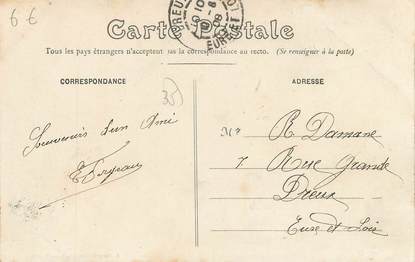 6 €
Carte Postale
Tous les pays étrangers n'acceptent pas la correspondance au recto. (Se renseigner à la poste)
CORRESPONDANCE
ADRESSE
35
Souvenirs d'un Ami
Mr R Damane
7 Rue Grande
Dreux
Eure et Loir